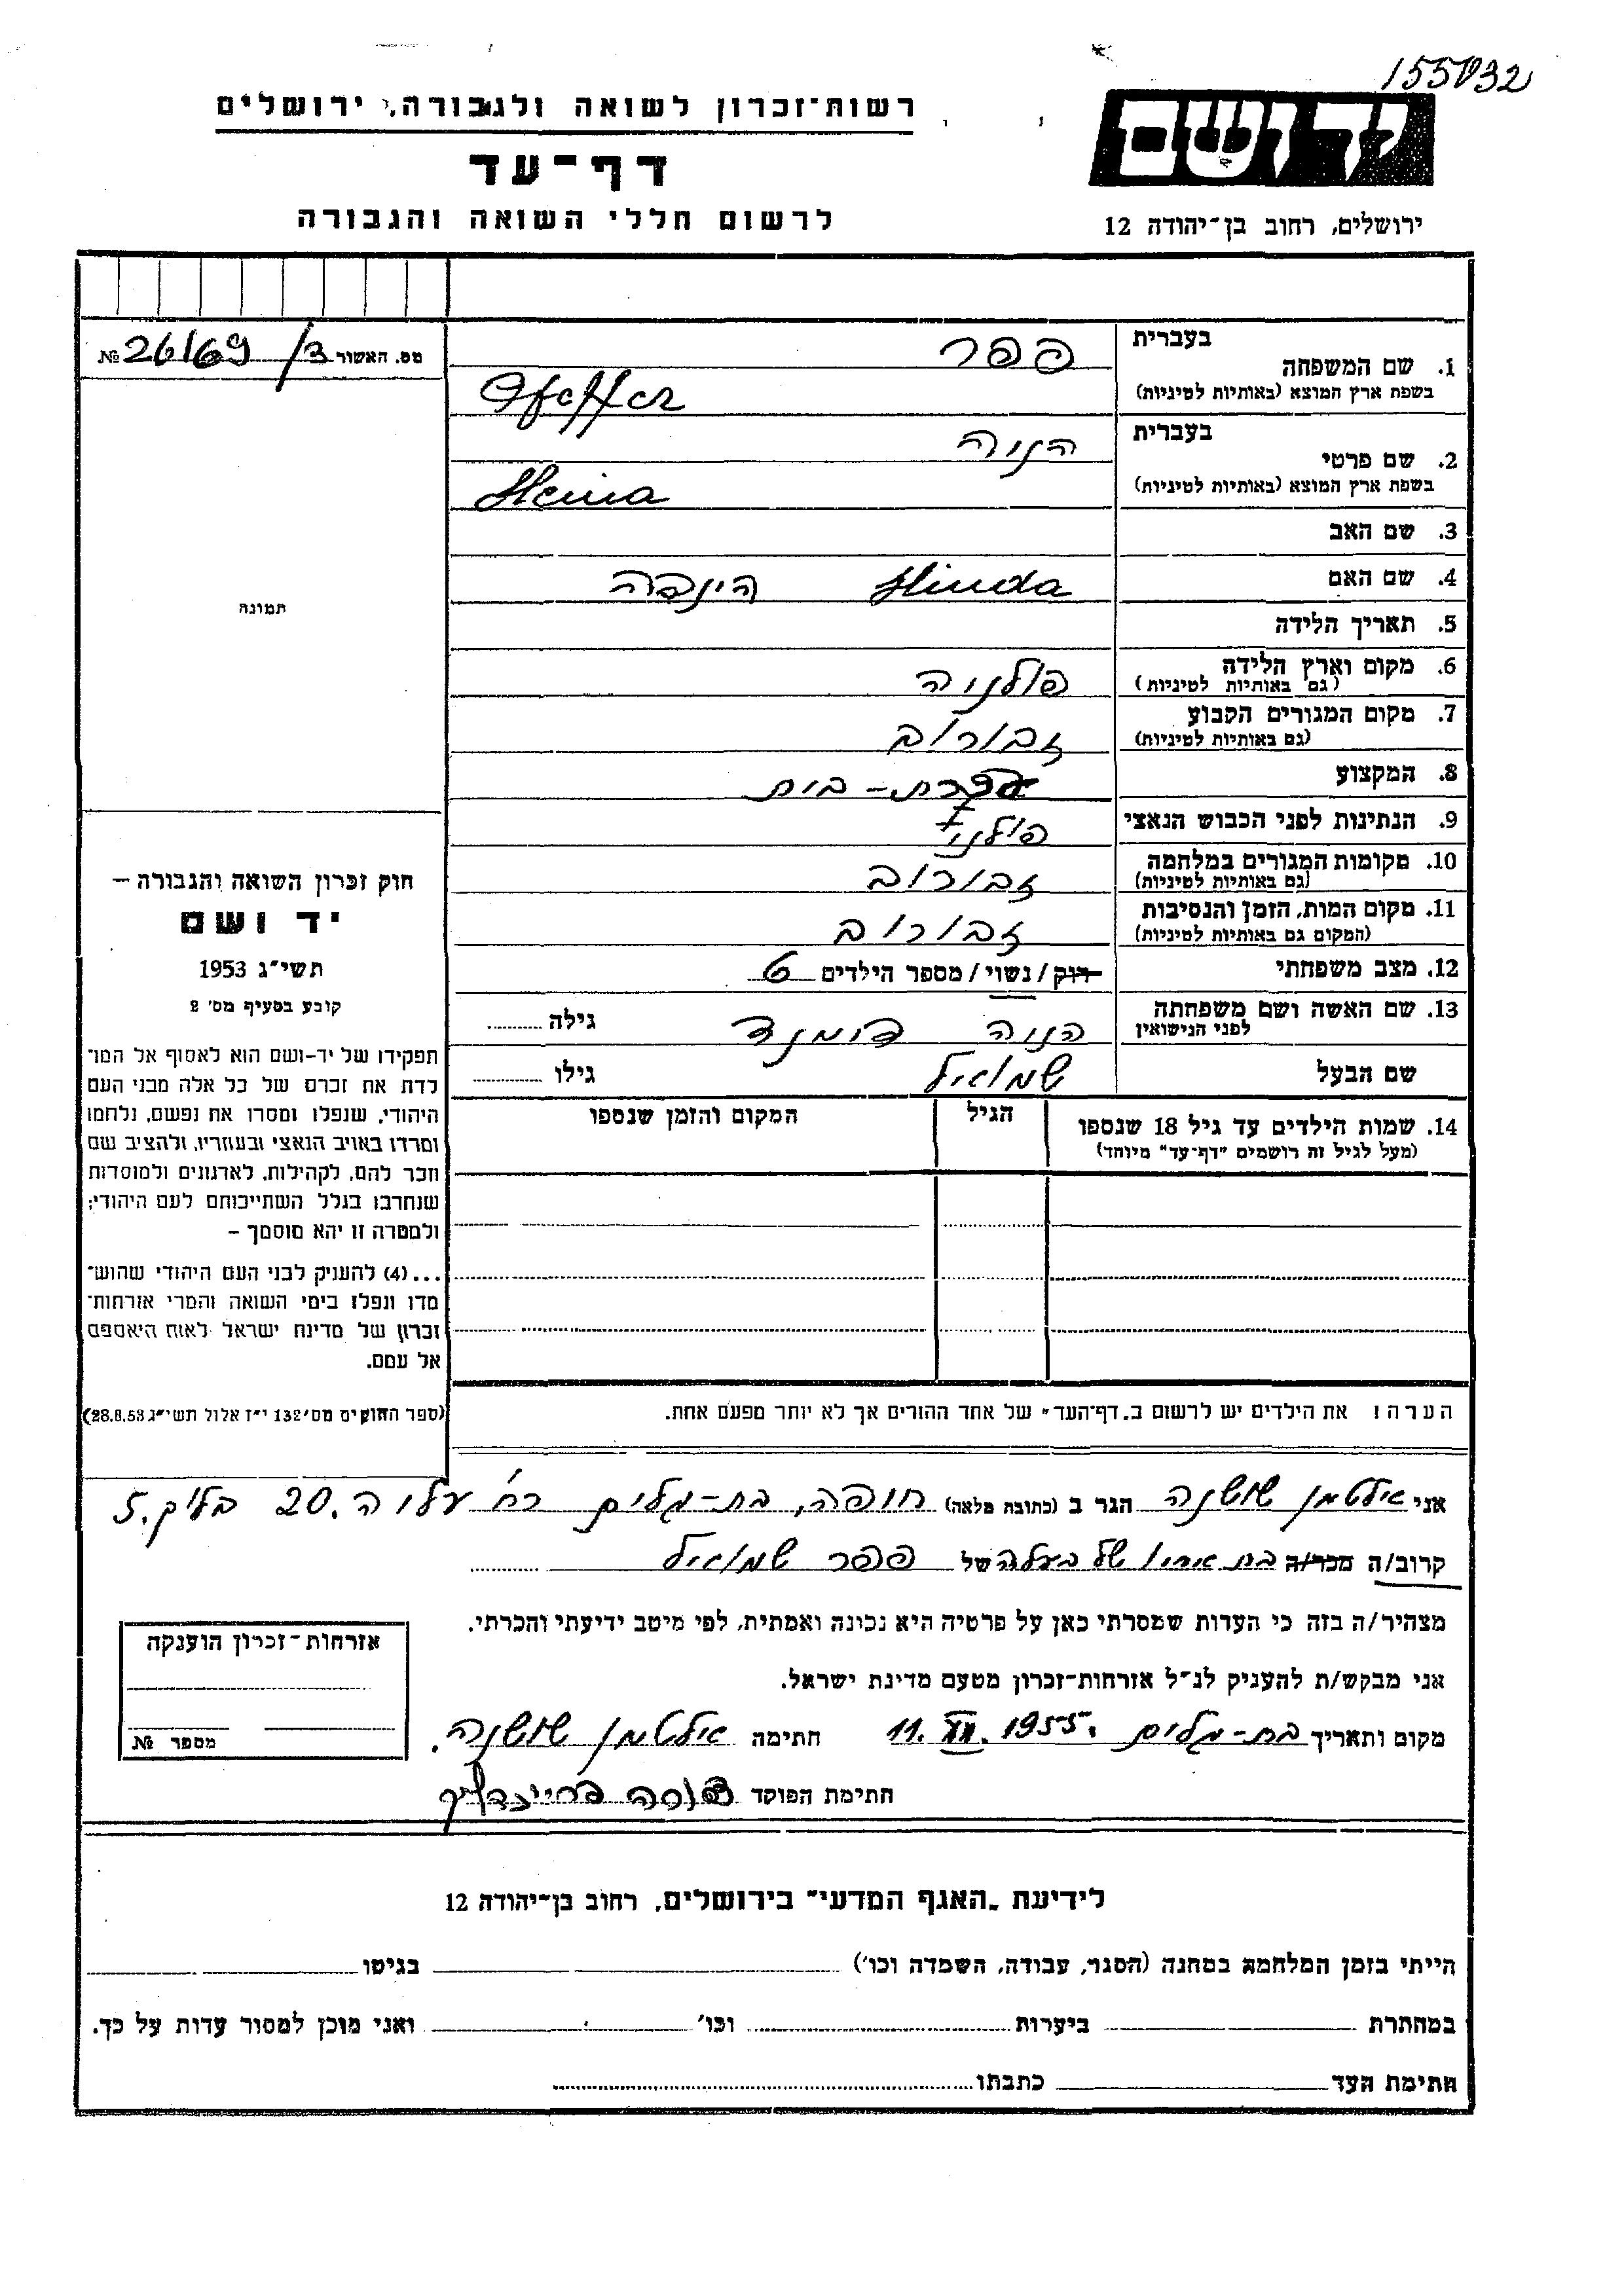 155032
רשות־זכרון לשואה ולגבורה, ירושלים
יד ושם
דף־עד
לרשום חללי השואה והגבורה
ירושלים, רחוב בן־יהודה 12
מס. האשור № 26/69 /ב
בעברית פפר
1. שם המשפחה
בשפת ארץ המוצא (באותיות לטיניות) Pfeffer
בעברית הניה
2. שם פרטי
בשפת ארץ המוצא (באותיות לטיניות) Henia
3. שם האב
4. שם האם Hinda הינדה
5. תאריך הלידה
6. מקום וארץ הלידה פולניה
(גם באותיות לטיניות)
7. מקום המגורים הקבוע זבורוב
(גם באותיות לטיניות)
8. המקצוע עקרת-בית
9. הנתינות לפני הכבוש הנאצי פולני
10. מקומות המגורים במלחמה זבורוב
(גם באותיות לטיניות)
11. מקום המות, הזמן והנסיבות זבורוב
(המקום גם באותיות לטיניות)
12. מצב משפחתי רוק / נשוי / מספר הילדים 6
13. שם האשה ושם משפחתה הניה דימנד גילה
לפני הנישואין
שם הבעל שמואיל גילו
14. שמות הילדים עד גיל 18 שנספו הגיל המקום והזמן שנספו
(מעל לגיל זה רושמים "דף־עד" מיוחד)
תמונה
חוק זכרון השואה והגבורה –
יד ושם
תשי"ג 1953
קובע בסעיף מס' 2
תפקידו של יד-ושם הוא לאסוף אל המו־
לדת את זכרם של כל אלה מבני העם
היהודי, שנפלו ומסרו את נפשם, נלחמו
ומרדו באויב הנאצי ובעוזריו, ולהציב שם
וזכר להם, לקהילות, לארגונים ולמוסדות
שנחרבו בגלל השתייכותם לעם היהודי;
ולמטרה זו יהא מוסמך –
...(4) להעניק לבני העם היהודי שהוש־
מדו ונפלו בימי השואה והמרי אזרחות־
זכרון של מדינת ישראל לאות היאספם
אל עמם.
(ספר החוקים מס' 132 י"ז אלול תשי"ג 28.8.53)
הערה: את הילדים יש לרשום ב"דף־העד" של אחד ההורים אך לא יותר מפעם אחת.
אני אילטמן שושנה הגר ב (כתובת מלאה) חיפה, בת-גלים רח' עליה 20. בלוק 5.
קרוב/ה מכר/ה בת אחיו של בעלה של פפר שמואיל
מצהיר/ה בזה כי העדות שמסרתי כאן על פרטיה היא נכונה ואמתית, לפי מיטב ידיעתי והכרתי.
אני מבקש/ת להעניק לנ"ל אזרחות־זכרון מטעם מדינת ישראל.
מקום ותאריך בת-גלים 11.XII.1955. חתימה אילטמן שושנה.
חתימת הפוקד
אזרחות־זכרון הוענקה
מספר №
לידיעת "האגף המדעי" בירושלים, רחוב בן־יהודה 12
הייתי בזמן המלחמה במחנה (הסגר, עבודה, השמדה וכו') בגיטו
במחתרת ביערות וכו' ואני מוכן למסור עדות על כך.
חתימת העד כתבתו